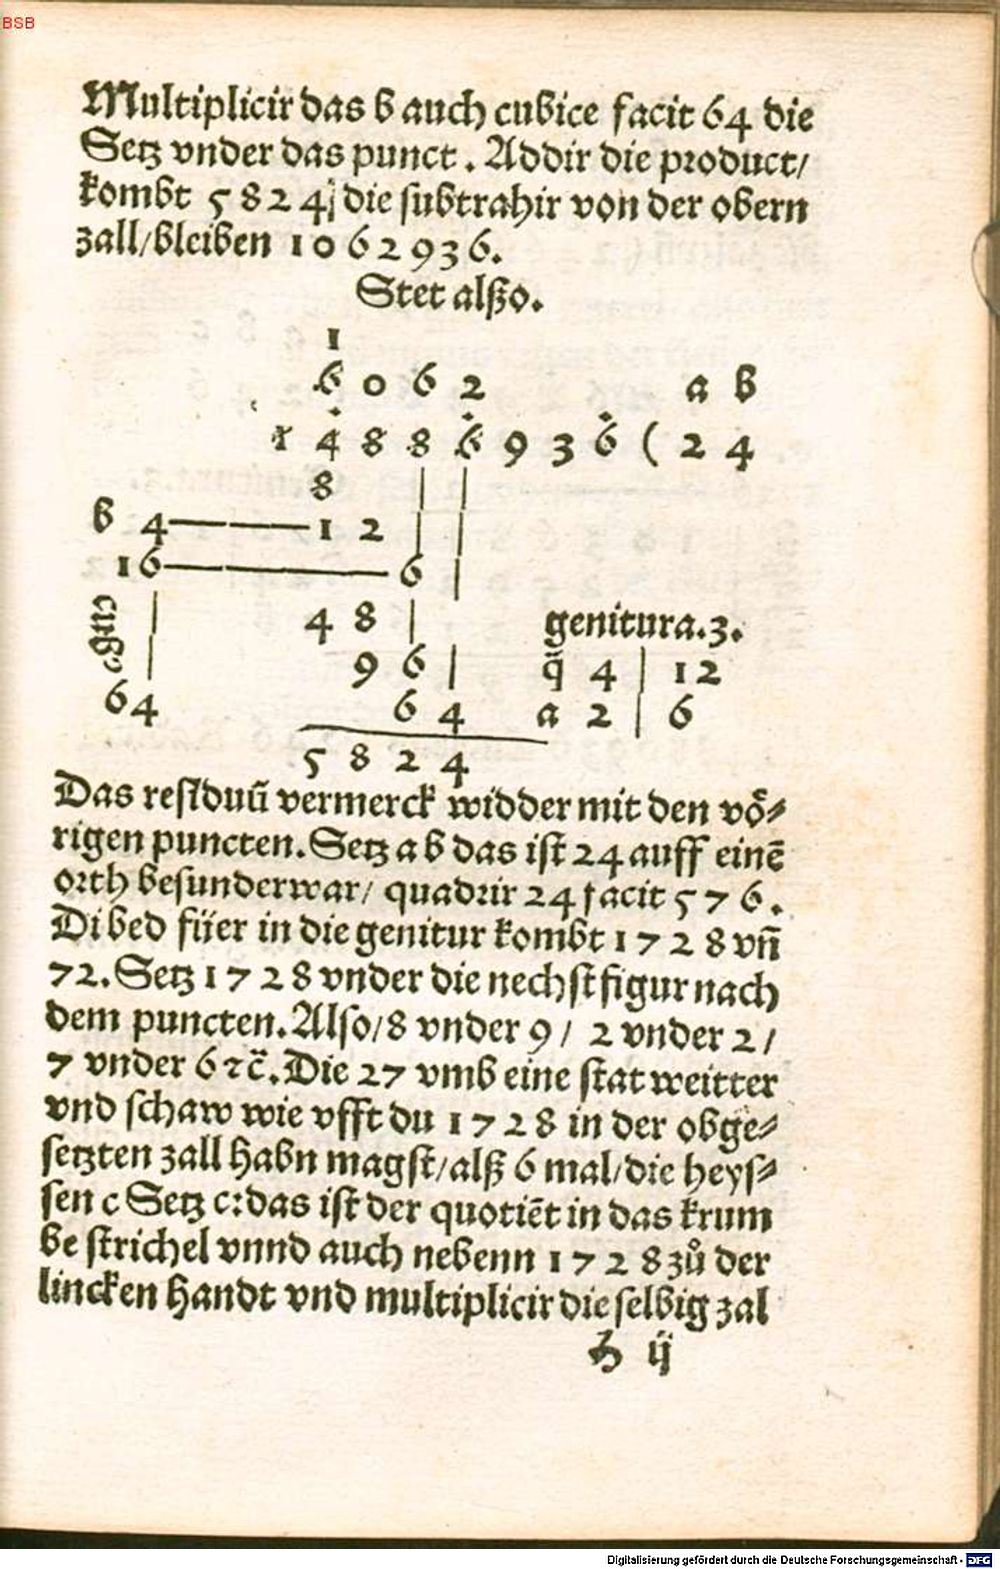 BSB
Multiplicir das b auch cubice facit 64 die
Setz vnder das punct . Addir die product/
kombt 5 8 2 4/ die subtrahir von der obern
zall/bleiben 1 0 6 2 9 3 6.
Stet alßo.
1
6 0 6 2 a b
1 4 8 8 6 9 3 6 ( 2 4
8
b 4 1 2
16 6
cub?
4 8 genitura.3.
9 6 q̃ 4 | 12
64 6 4 a 2 | 6
5 8 2 4
Das residuũ vermerck widder mit den vö⸗
rigen puncten. Setz a b das ist 24 auff einẽ
orth besunderwar/ quadrir 24 facit 5 7 6.
Di bed füer in die genitur kombt 1 7 2 8 vñ
72. Setz 1 7 2 8 vnder die nechst figur nach
dem puncten. Also/8 vnder 9/ 2 vnder 2/
7 vnder 6 ⁊c̃. Die 27 vmb eine stat weitter
vnd schaw wie vfft du 1 7 2 8 in der obge⸗
setzten zall habn magst/alß 6 mal/die heys⸗
sen c Setz c: das ist der quotiẽt in das krum
be strichel vnnd auch nebenn 1 7 2 8 zů der
lincken handt vnd multiplicir die selbig zal
h ij
Digitalisierung gefördert durch die Deutsche Forschungsgemeinschaft - DFG